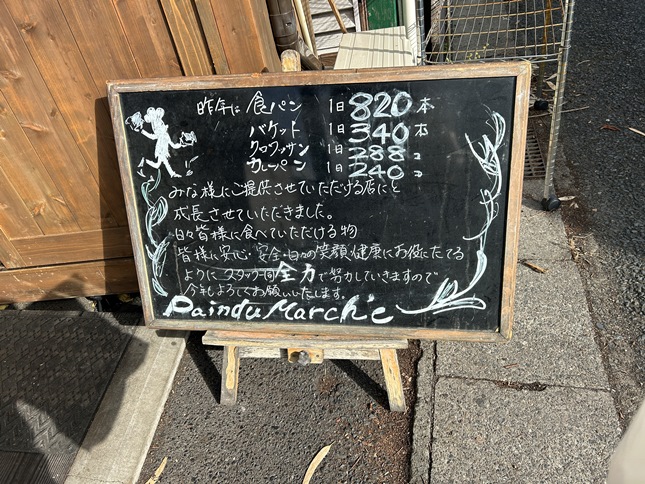 昨年は 食パン 1日 820本
バケット 1日 340本
クロワッサン 1日 288コ
カレーパン 1日 240コ
みな様にご提供させていただける店にと
成長させていただきました。
日々皆様に食べていただける物
皆様に安心・安全・日々の笑顔、健康にお役にたてる
ようにスタッフ一同全力で努力していきますので
今年もよろしくお願いいたします。
Pain du Marché